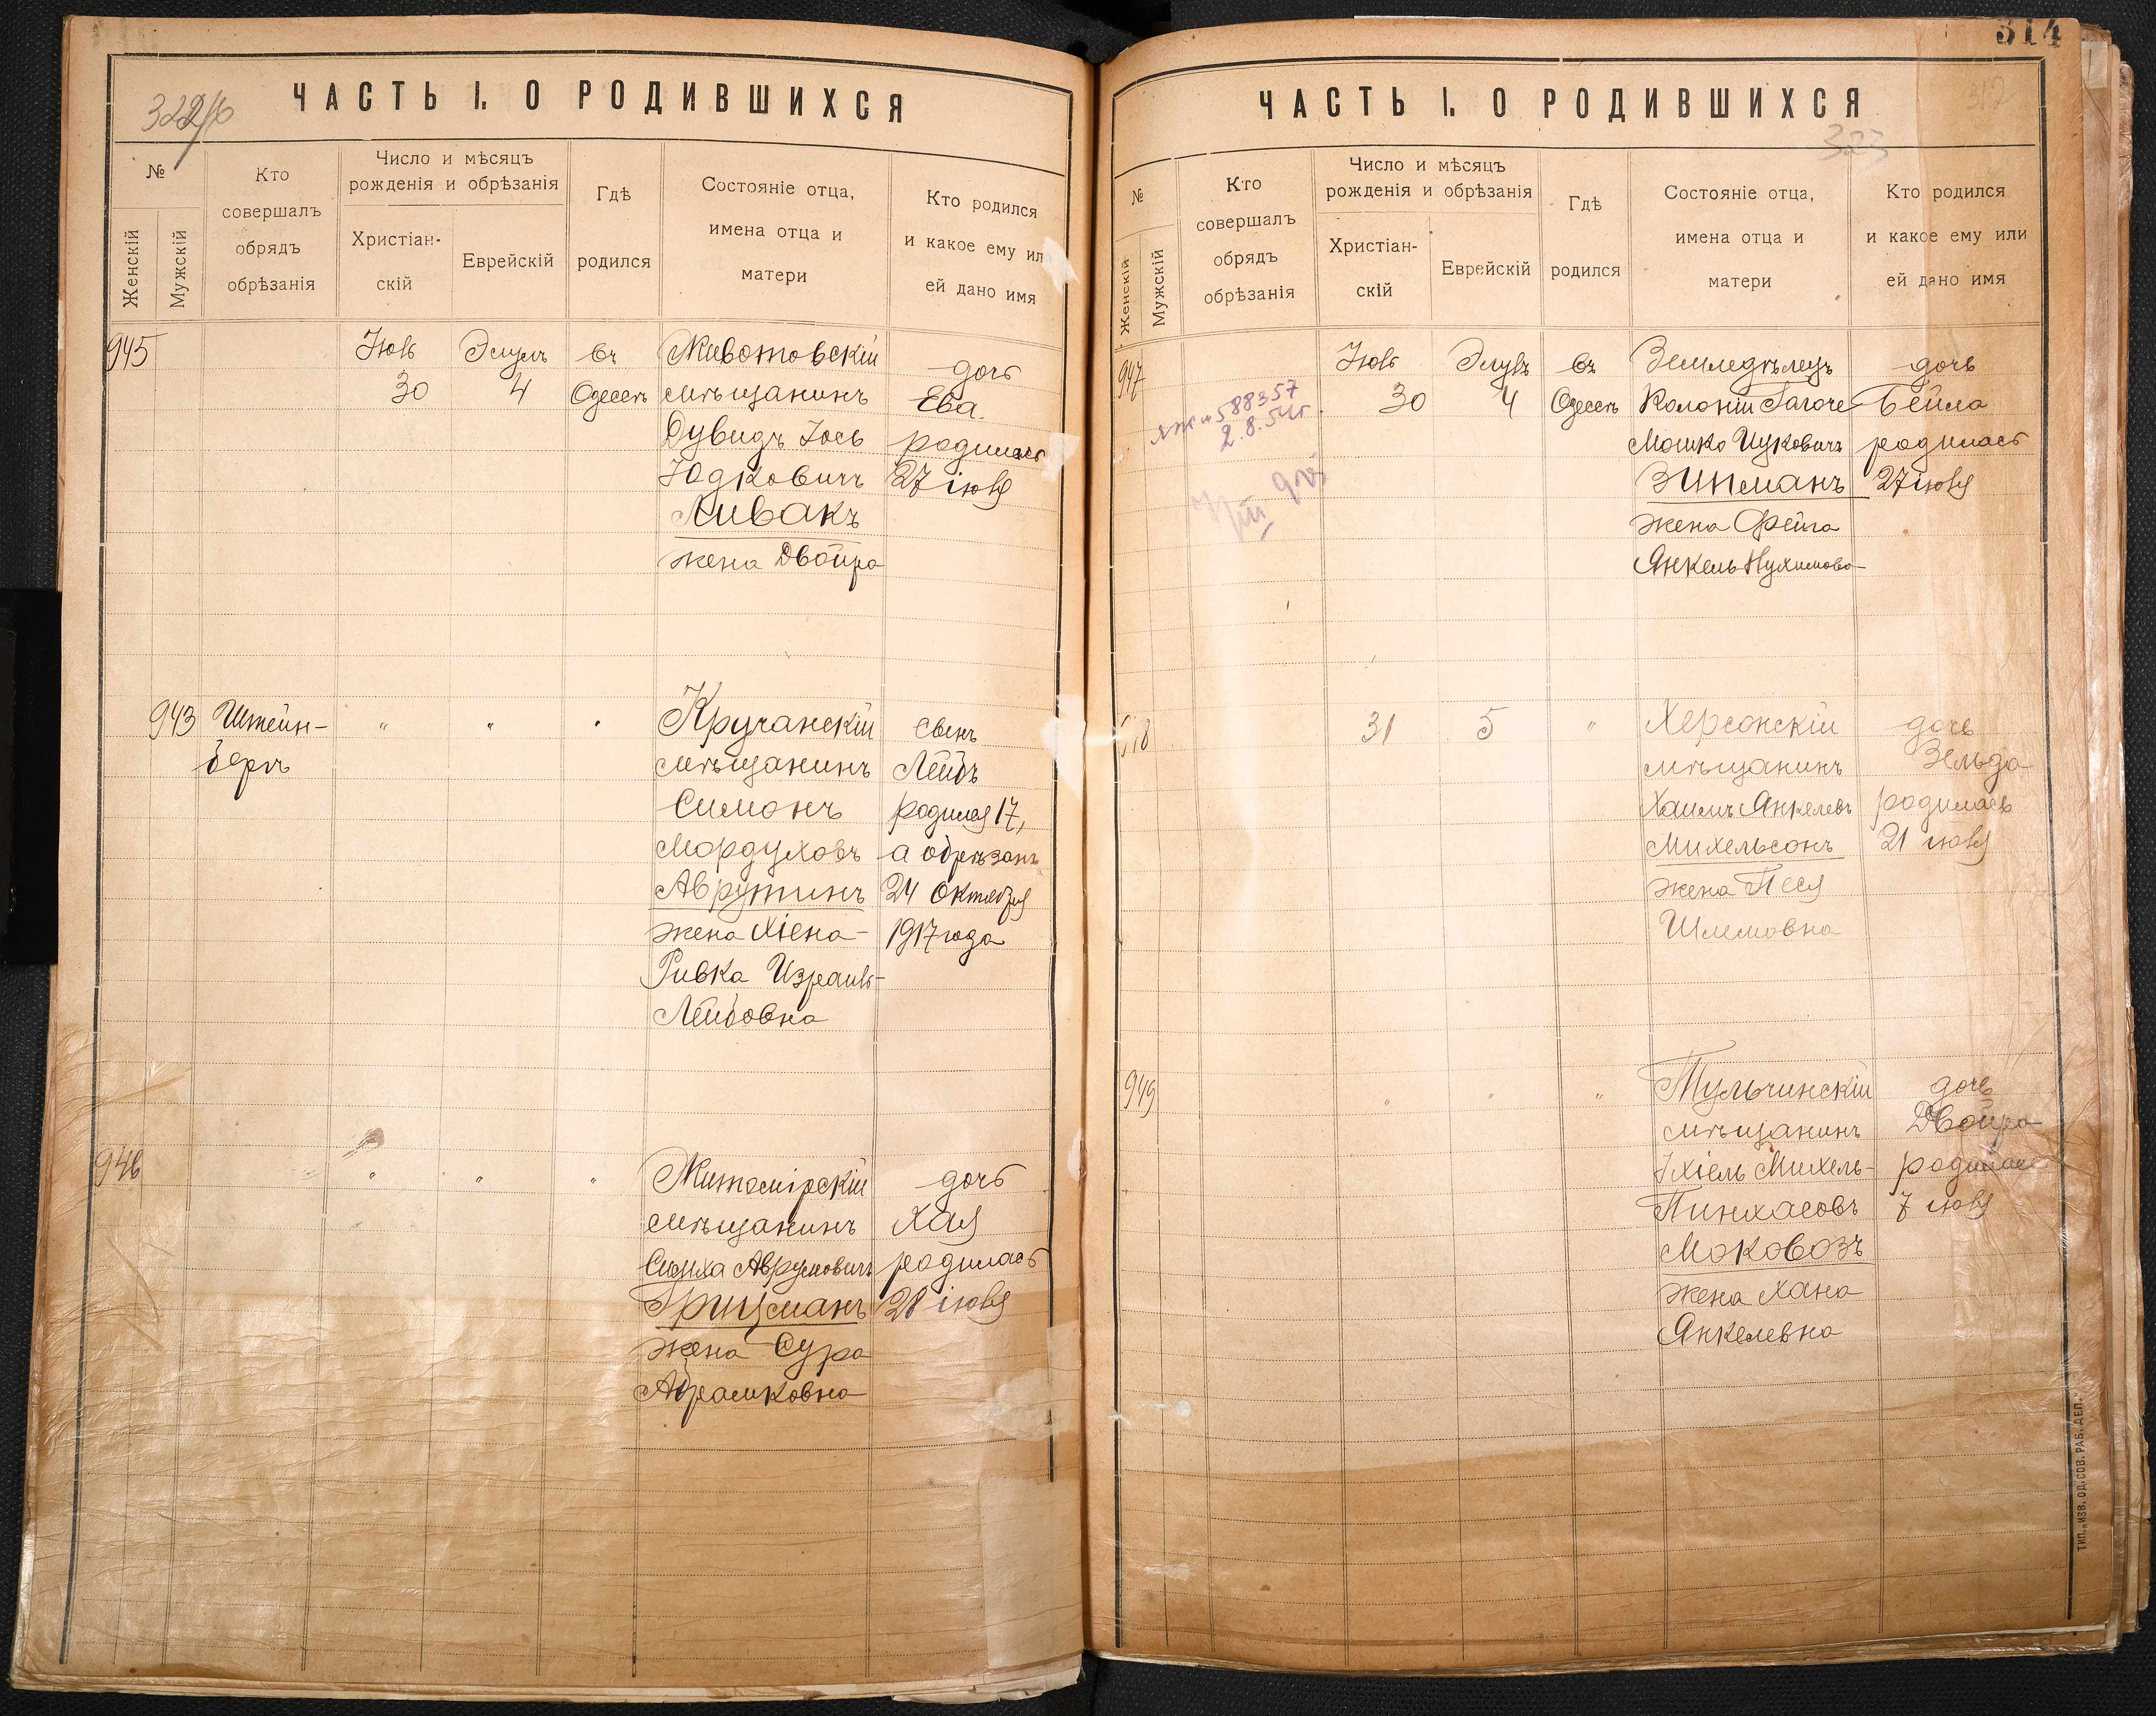 ЧАСТЬ I. О РОДИВШИХСЯ
№
Женскій
Мужскій
Кто
совершалъ
обрядъ
обрѣзанія
Число и мѣсяцъ
рожденія и обрѣзанія
Христіан-
скій
Еврейскій
Гдѣ
родился
Состояніе отца,
имена отца и
матери
Кто родился
и какое ему или
ей дано имя
945
Іюль
30
Элулъ
4
въ
Одессѣ
Животовскій
мѣщанинъ
Дувидъ Іось
Юдковичъ
Ливакъ
жена Двойра
дочь
Ева.
родилась
27 іюля
943
Штейн-
бергъ
" " "
Кручанскій
мѣщанинъ
Симонъ
Мордуховъ
Аврутинъ
жена Хіена-
Ривка Израиль-
Лейбовна
сынъ
Лейбъ
родился 17,
а обрѣзанъ
24 Октября
1917 года
946
" " "
Житомірскій
мѣщанинъ
Симха Аврумовичъ
Грицманъ
жена Сура
Абрамковна
дочь
Хая
родилась
28 іюля
314
ЧАСТЬ I. О РОДИВШИХСЯ
323
№
Женскій
Мужскій
Кто
совершалъ
обрядъ
обрѣзанія
Число и мѣсяцъ
рожденія и обрѣзанія
Христіан-
скій
Еврейскій
Гдѣ
родился
Состояніе отца,
имена отца и
матери
Кто родился
и какое ему или
ей дано имя
947
588357
2.8.54г
Іюль
30
Элулъ
4
въ
Одессѣ
Земледѣлецъ
Колоніи
Мошко Ицковичъ
Зипманъ
жена Фейга
Янкель Нухимова
дочь
Бейла
родилась
27 іюля
31
5
"
Херсонскій
мѣщанинъ
Хаимъ Янкелевъ
Михельсонъ
жена Песя
Шлемовна
дочь
Зельда
родилась
21 іюля
949
" " "
Тульчинскій
мѣщанинъ
Ихіель Михель-
Пинхасовъ
Моковозъ
жена Хана
Янкелевна
дочь
Двойра
родилась
7 іюля
ТИП. „ИЗВ. ОД. СОВ. РАБ. ДЕП."